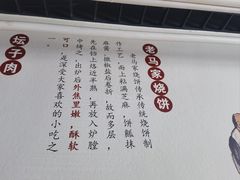 老马家烧饼
老马家烧饼传承传统烧饼制
作工艺，面上粘满芝麻，饼瓤抹
麻黄、撒椒盐后卷折，故而多层，
先在铛上烙近半熟，再放入炉膛
中烤之，出炉后外焦里嫩，酥软
可口，是深受大家喜欢的小吃之
坛子肉